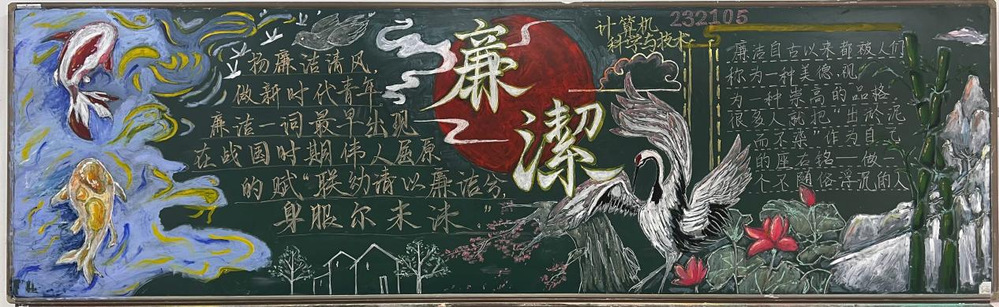 扬廉洁清风,
做新时代青年
廉洁一词最早出现
在战国时期伟人屈原
的赋“联幼请以廉洁兮,
身服尔未沫”
廉
潔
计算机
科学与技术
232105
廉洁自古以来都被人们
称为一种美德,视
为一种崇高的品格,
很多人就把“出淤泥
而不染”作为自己
的座右铭——做一
个不随俗浮沉的人